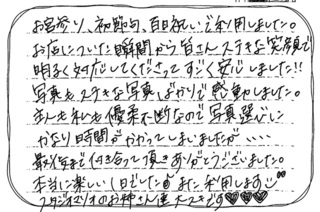 お宮参り、初節句、百日祝いで利用しました。
お店についた瞬間から皆さんステキな笑顔で
明るく対応してくださってすごく安心しました!!
写真もステキな写真ばかりで感動しました。
主人も私も優柔不断なので写真選びに
かなり時間がかかってしまいましたが....
最後まで付き合って頂きありがとうございました。
本当に楽しい1日でした また利用します
スタジオソリオのお姉さん達大スキです♡♡♡